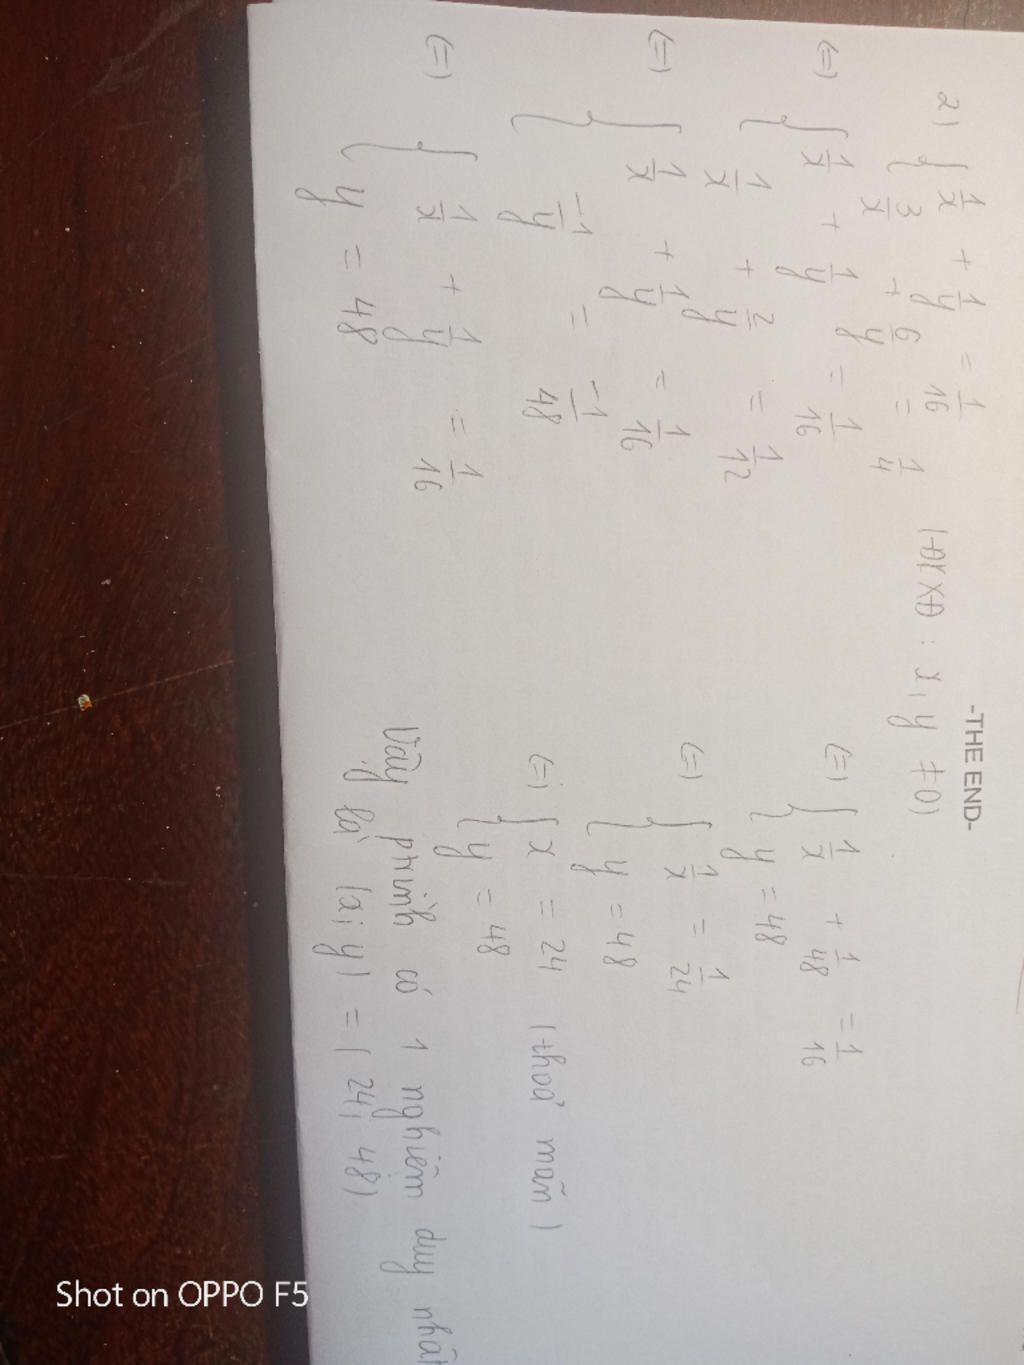 -THE END-
2) { 1/x + 1/y = 1/16
3/x + 6/y = 1/4 (ĐKXĐ: x, y ≠ 0)
(=) { 1/x + 1/y = 1/16
1/x + 2/y = 1/12
(=) { 1/x + 1/y = 1/16
-1/y = -1/48
(=) { 1/x + 1/y = 1/16
y = 48
(=) { 1/x + 1/48 = 1/16
y = 48
(=) { 1/x = 1/24
y = 48
(=) { x = 24 (thoả mãn)
y = 48
Vậy ptrình có 1 nghiệm duy nhất
là (x; y) = (24; 48)
Shot on OPPO F5